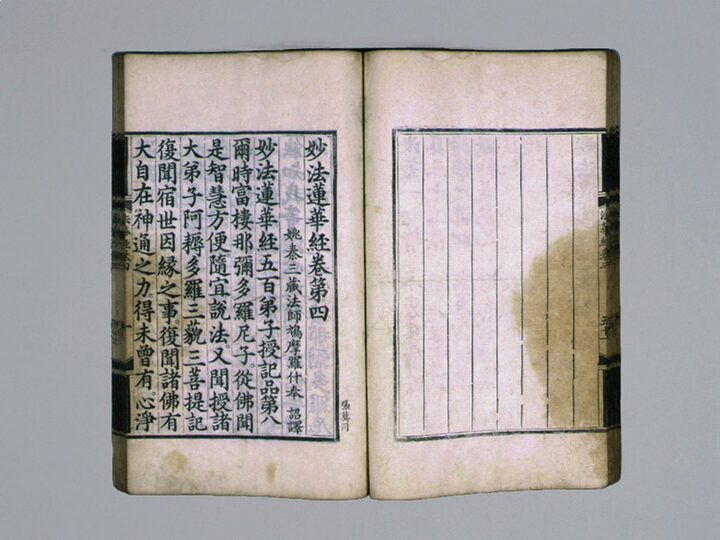 妙法蓮華經卷第四
姚秦三藏法師鳩摩羅什奉 詔譯
妙法蓮華經五百弟子授記品第八
爾時富樓那彌多羅尼子從佛聞
是智慧方便隨宜說法又聞授諸
大弟子阿耨多羅三藐三菩提記
復聞宿世因緣之事復聞諸佛有
大自在神通之力得未曾有心淨